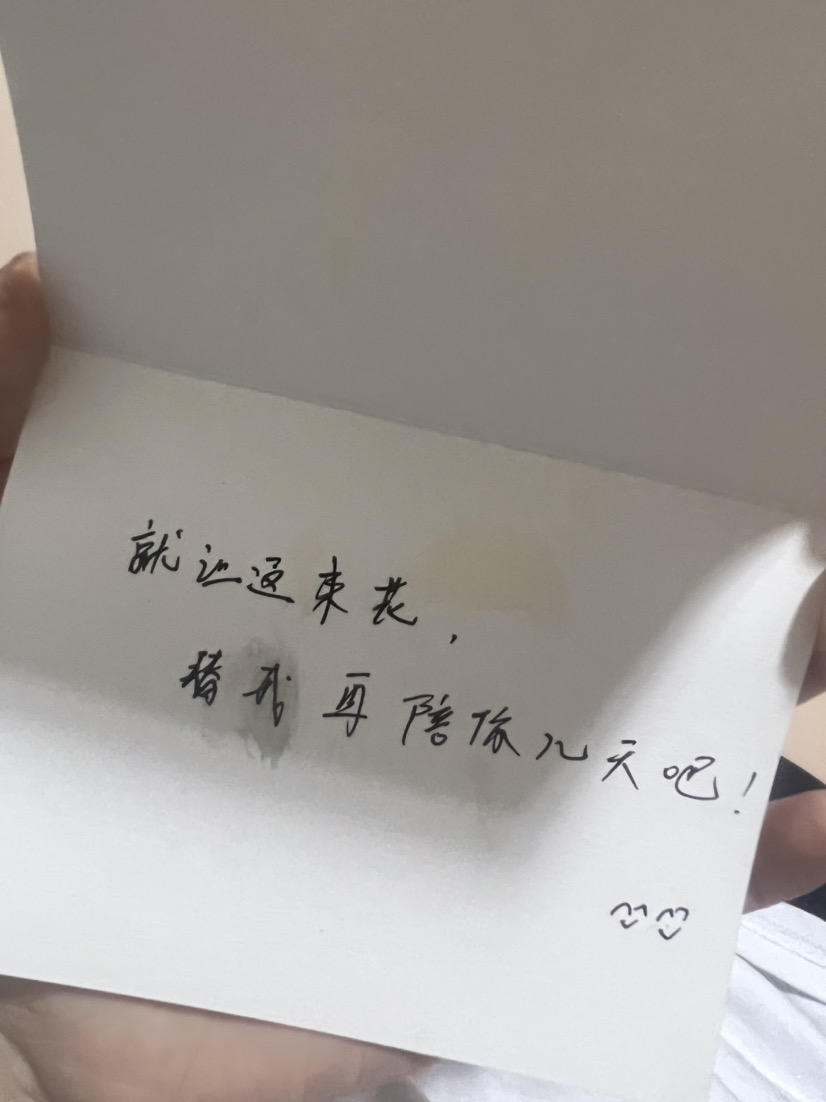 就让这束花，
替我再陪你几天吧！